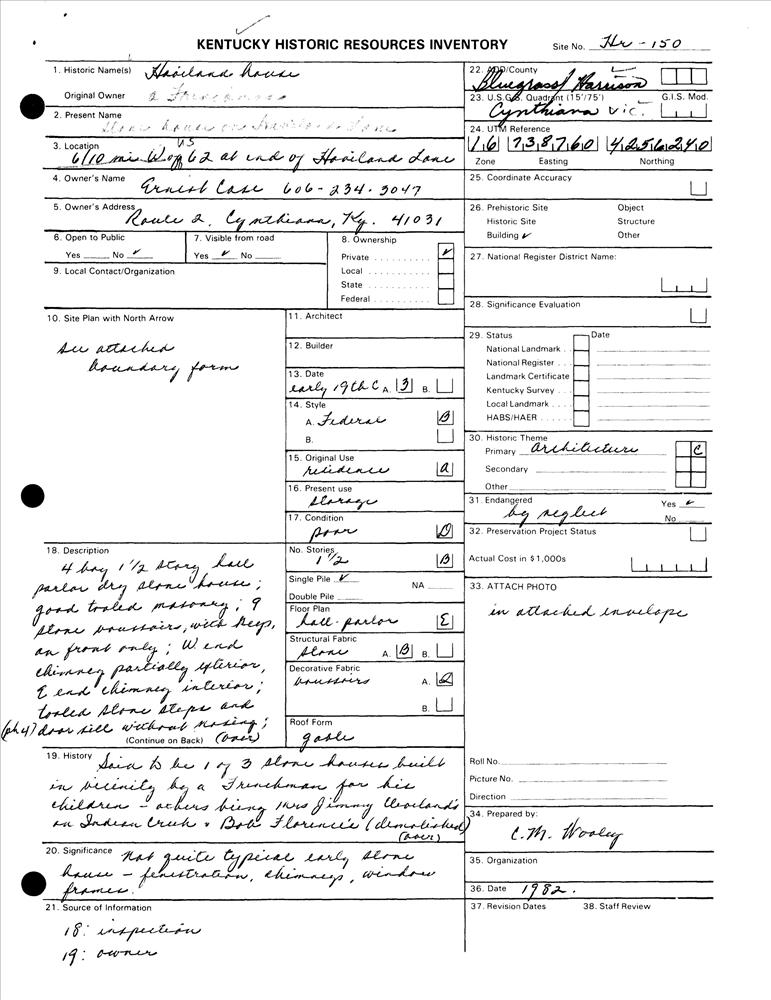 KENTUCKY HISTORIC RESOURCES INVENTORY
Site No. Hr-150
1. Historic Name(s) Haviland house
Original Owner a Frenchman
2. Present Name
stone house on Haviland Lane
3. Location
6/10 mi W of US 62 at end of Haviland Lane
4. Owner's Name Ernest Case 606-234-3047
5. Owner's Address Route 2, Cynthiana, Ky. 41031
6. Open to Public
Yes No ✓
7. Visible from road
Yes ✓ No
8. Ownership
Private ✓
Local
State
Federal
9. Local Contact/Organization
10. Site Plan with North Arrow
see attached
boundary form
11. Architect
12. Builder
13. Date
early 19th C A. 3 B.
14. Style
A. Federal B
B.
15. Original Use
residence a
16. Present use
storage
17. Condition
poor D
18. Description
4 bay 1 1/2 story hall
parlor dry stone house;
good tooled masonry; 9
stone voussoirs, with keep,
on front only; W end
chimney partially exterior,
E end chimney interior;
tooled stone steps and
(ph4) door sill without nosing;
(Continue on Back) (over)
No. Stories
1 1/2 B
Single Pile ✓ NA
Double Pile
Floor Plan
hall-parlor E
Structural Fabric
stone A. B B.
Decorative Fabric
voussoirs A. 2
B.
Roof Form
gable
19. History Said to be 1 of 3 stone houses built
in vicinity by a Frenchman for his
children - others being Mrs Jimmy Cleveland's
on Indian Creek & Bob Florence's (demolished)
(over)
20. Significance Not quite typical early stone
house - fenestration, chimneys, window
frames.
21. Source of Information
18: inspection
19: owner
22. ADD/County
Bluegrass/Harrison
23. U.S.G.S. Quadrant (15'/75') G.I.S. Mod.
Cynthiana Vic.
24. UTM Reference
16 738760 4256240
Zone Easting Northing
25. Coordinate Accuracy
26. Prehistoric Site Object
Historic Site Structure
Building ✓ Other
27. National Register District Name:
28. Significance Evaluation
29. Status Date
National Landmark
National Register
Landmark Certificate
Kentucky Survey
Local Landmark
HABS/HAER
30. Historic Theme
Primary architecture C
Secondary
Other
31. Endangered Yes ✓
by neglect No
32. Preservation Project Status
Actual Cost in $1,000s
33. ATTACH PHOTO
in attached envelope
Roll No.
Picture No.
Direction
34. Prepared by:
C.M. Wooley
35. Organization
36. Date 1982.
37. Revision Dates 38. Staff Review